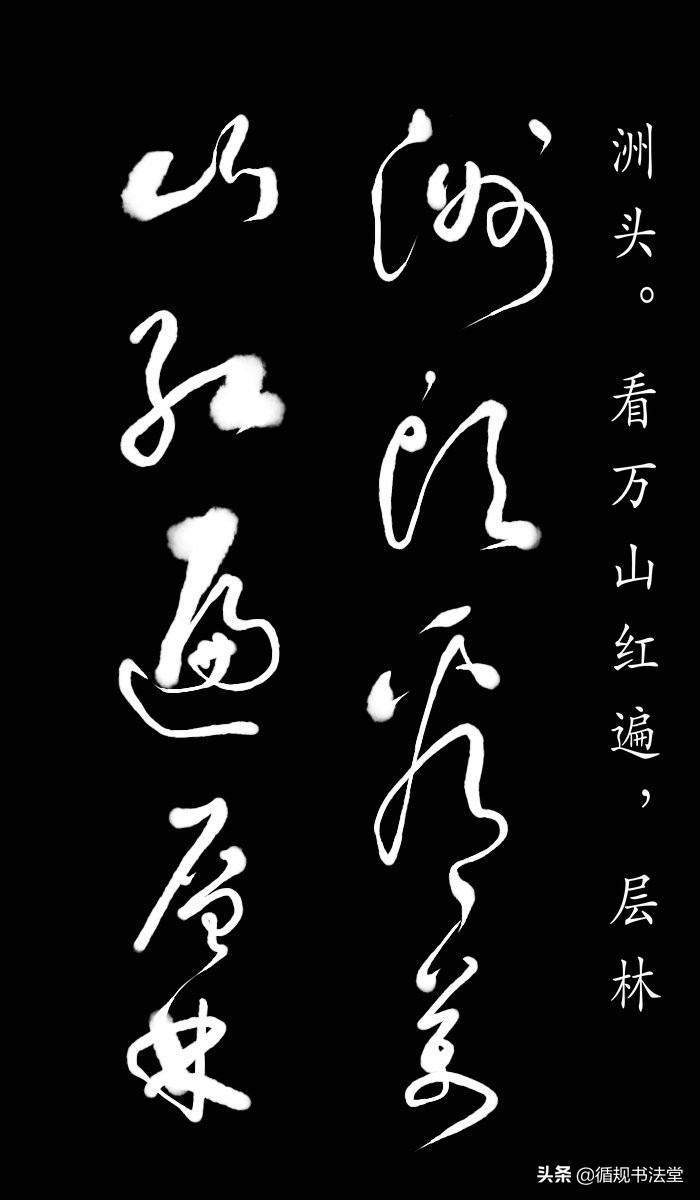 洲头。看万山红遍，层林
洲頭看萬
山紅遍層林
头条 @循规书法堂